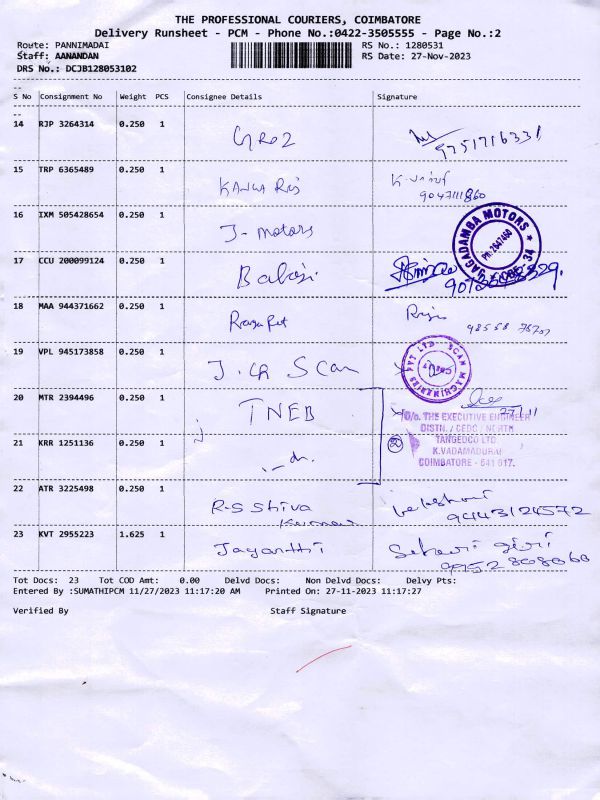 THE PROFESSIONAL COURIERS, COIMBATORE
Delivery Runsheet - PCM - Phone No.:0422-3505555 - Page No.:2
Route: PANNIMADAI RS No.: 1280531
Staff: AANANDAN RS Date: 27-Nov-2023
DRS No.: DCJB128053102
S No Consignment No Weight PCS Consignee Details Signature
14 RJP 3264314 0.250 1
9751716331
15 TRP 6365489 0.250 1
9047111860
16 IXM 505428654 0.250 1 J- Motors
JAGADAMBA MOTORS
34
17 CCU 200099124 0.250 1 Balaji
18 MAA 944371662 0.250 1
19 VPL 945173858 0.250 1 Scan
SCAN MACHINERIES PVT LTD
20 MTR 2394496 0.250 1 TNEB
27/11
O/o. THE EXECUTIVE ENGINEER
DISTN. / CEDC / NORTH
TANGEDCO LTD.
K.VADAMADURAI
COIMBATORE - 641 017.
21 KRR 1251136 0.250 1
22 ATR 3225498 0.250 1 R-S Shiva
Kumar
9443124572
23 KVT 2955223 1.625 1 Jayanthi
Tot Docs: 23 Tot COD Amt: 0.00 Delvd Docs: Non Delvd Docs: Delvy Pts:
Entered By :SUMATHIPCM 11/27/2023 11:17:20 AM Printed On: 27-11-2023 11:17:27
Verified By Staff Signature